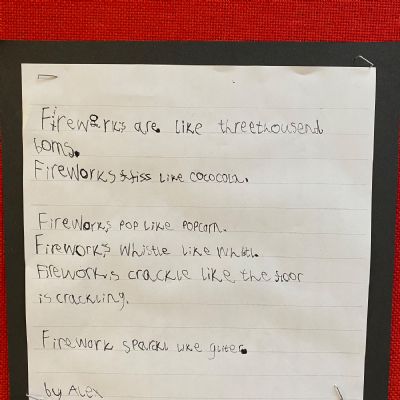 Fireworks are like threethousend
boms.
Fireworks fiss like cococola.
Fireworks pop like popcorn.
Fireworks whistle like whistl.
Fireworks crackle like the floor
is crackling.
Firework sparkl like gliter.
by Alex